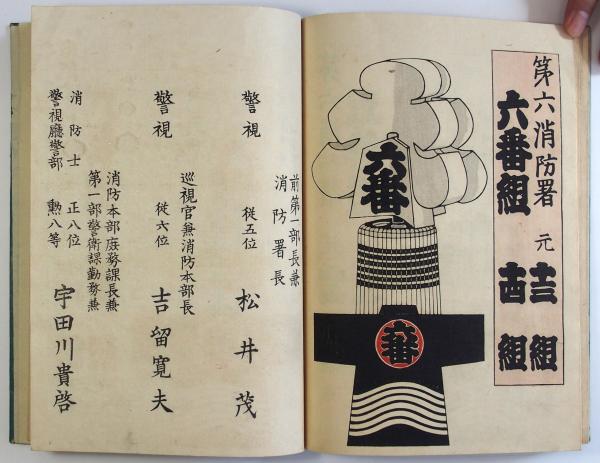 第六消防署 元 十三組
六番組 十四組
六番
六番
前第一部長兼
消防署長
警視 従五位 松井茂
巡視官兼消防本部長
警視 従六位 吉留寛夫
消防本部庶務課長兼
第一部警衛課勤務兼
消防士 正八位
警視廳警部 勲八等 宇田川貴啓